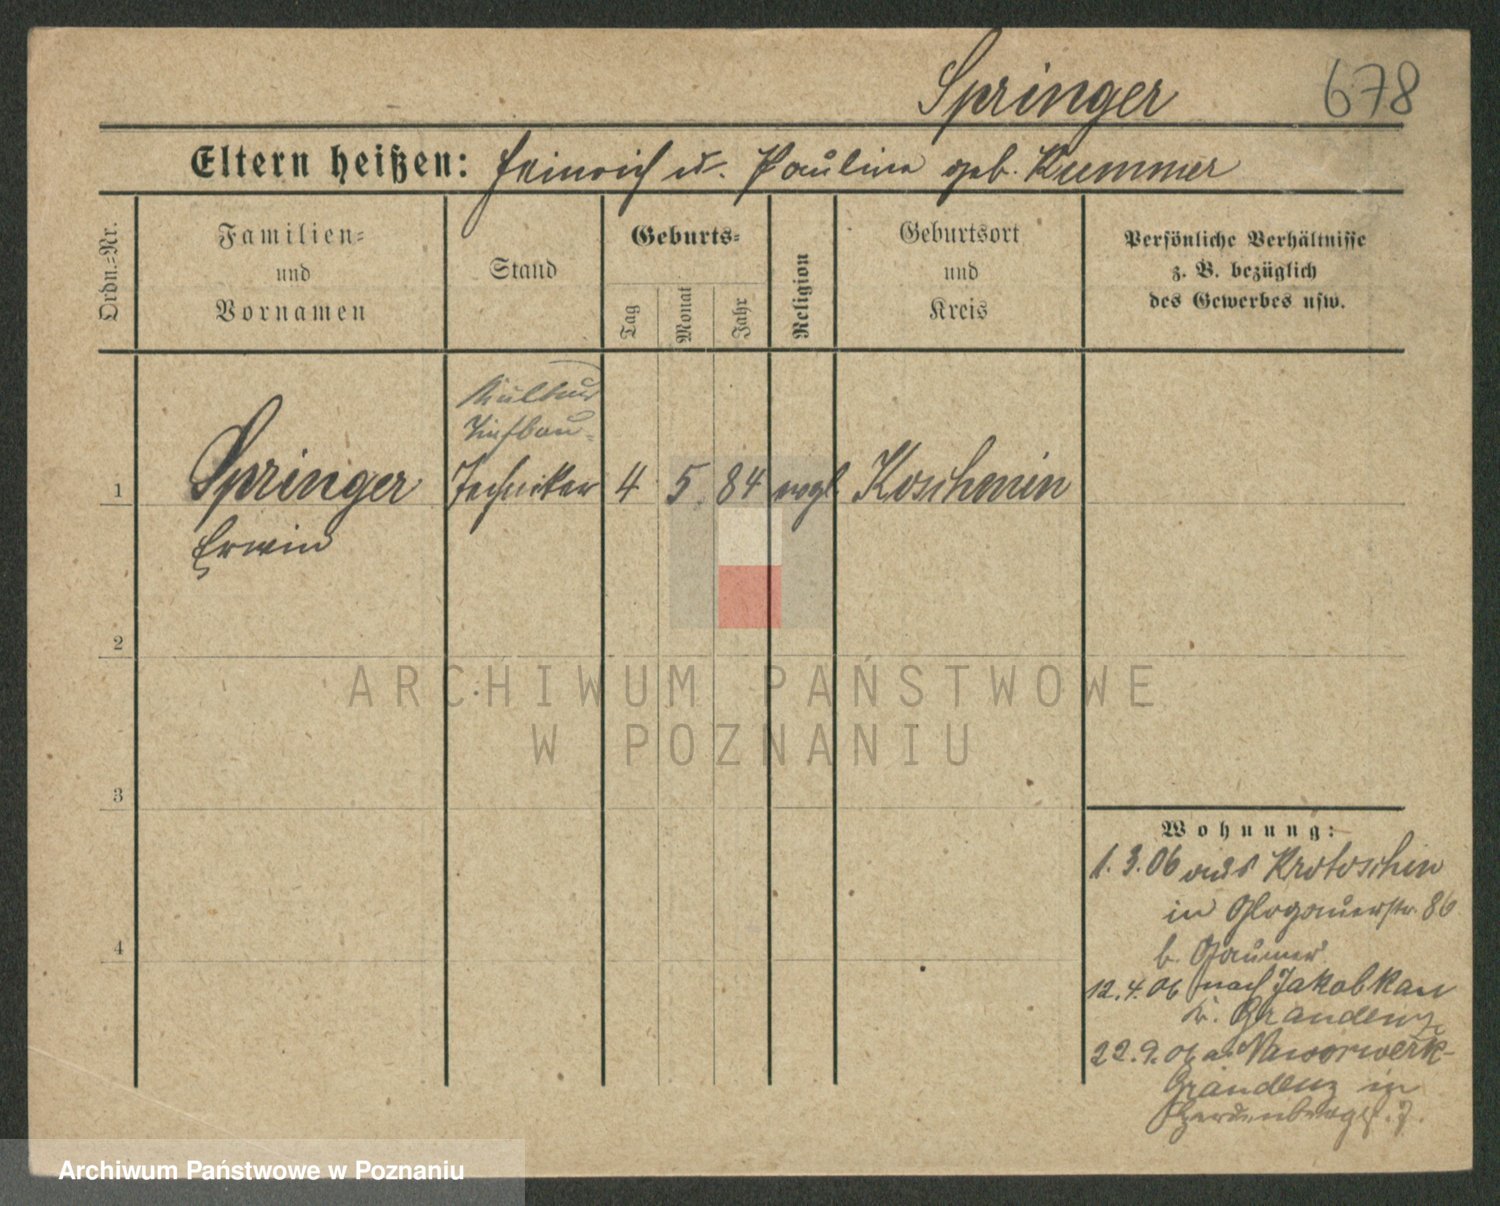 Springer 678
Eltern heißen: Heinrich u. Paulina geb. Kummer
Ordn.=Nr.
Familien=
und
Vornamen
Stand
Geburts=
Tag
Monat
Jahr
Religion
Geburtsort
und
Kreis
Persönliche Verhältnisse
z. B. bezüglich
des Gewerbes usw.
Kultur
Tiefbau-
1 Springer Techniker 4 5. 84 evgl Koschmin
Erwin
2
ARCHIWUM PAŃSTWOWE
W POZNANIU
3
4
Wohnung:
1.3.06 aus Krotoschin
in Glogauerstr. 86
b.
12.4.06 nach Jakobkau
Kr. Graudenz
22.9.06 a.
Graudenz in
Archiwum Państwowe w Poznaniu